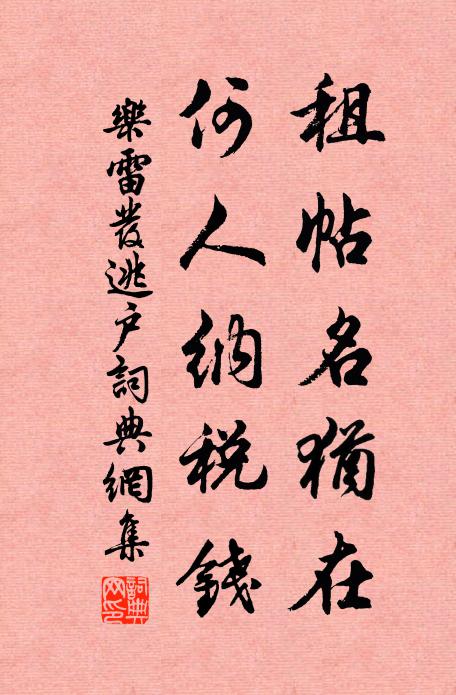 租帖名猶在
何人納税錢
樂雷發逃户詞典網集
詞典網印